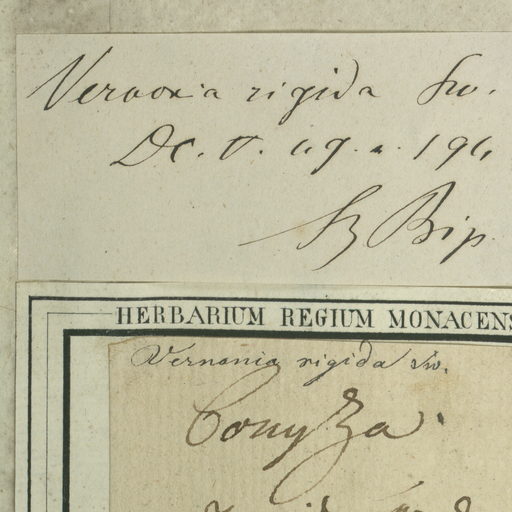 Vernonia rigida Sw.
DC. V. 49. n. 196.
Sz Bip
HERBARIUM REGIUM MONACENS
Vernonia rigida Sw.
Conyza.